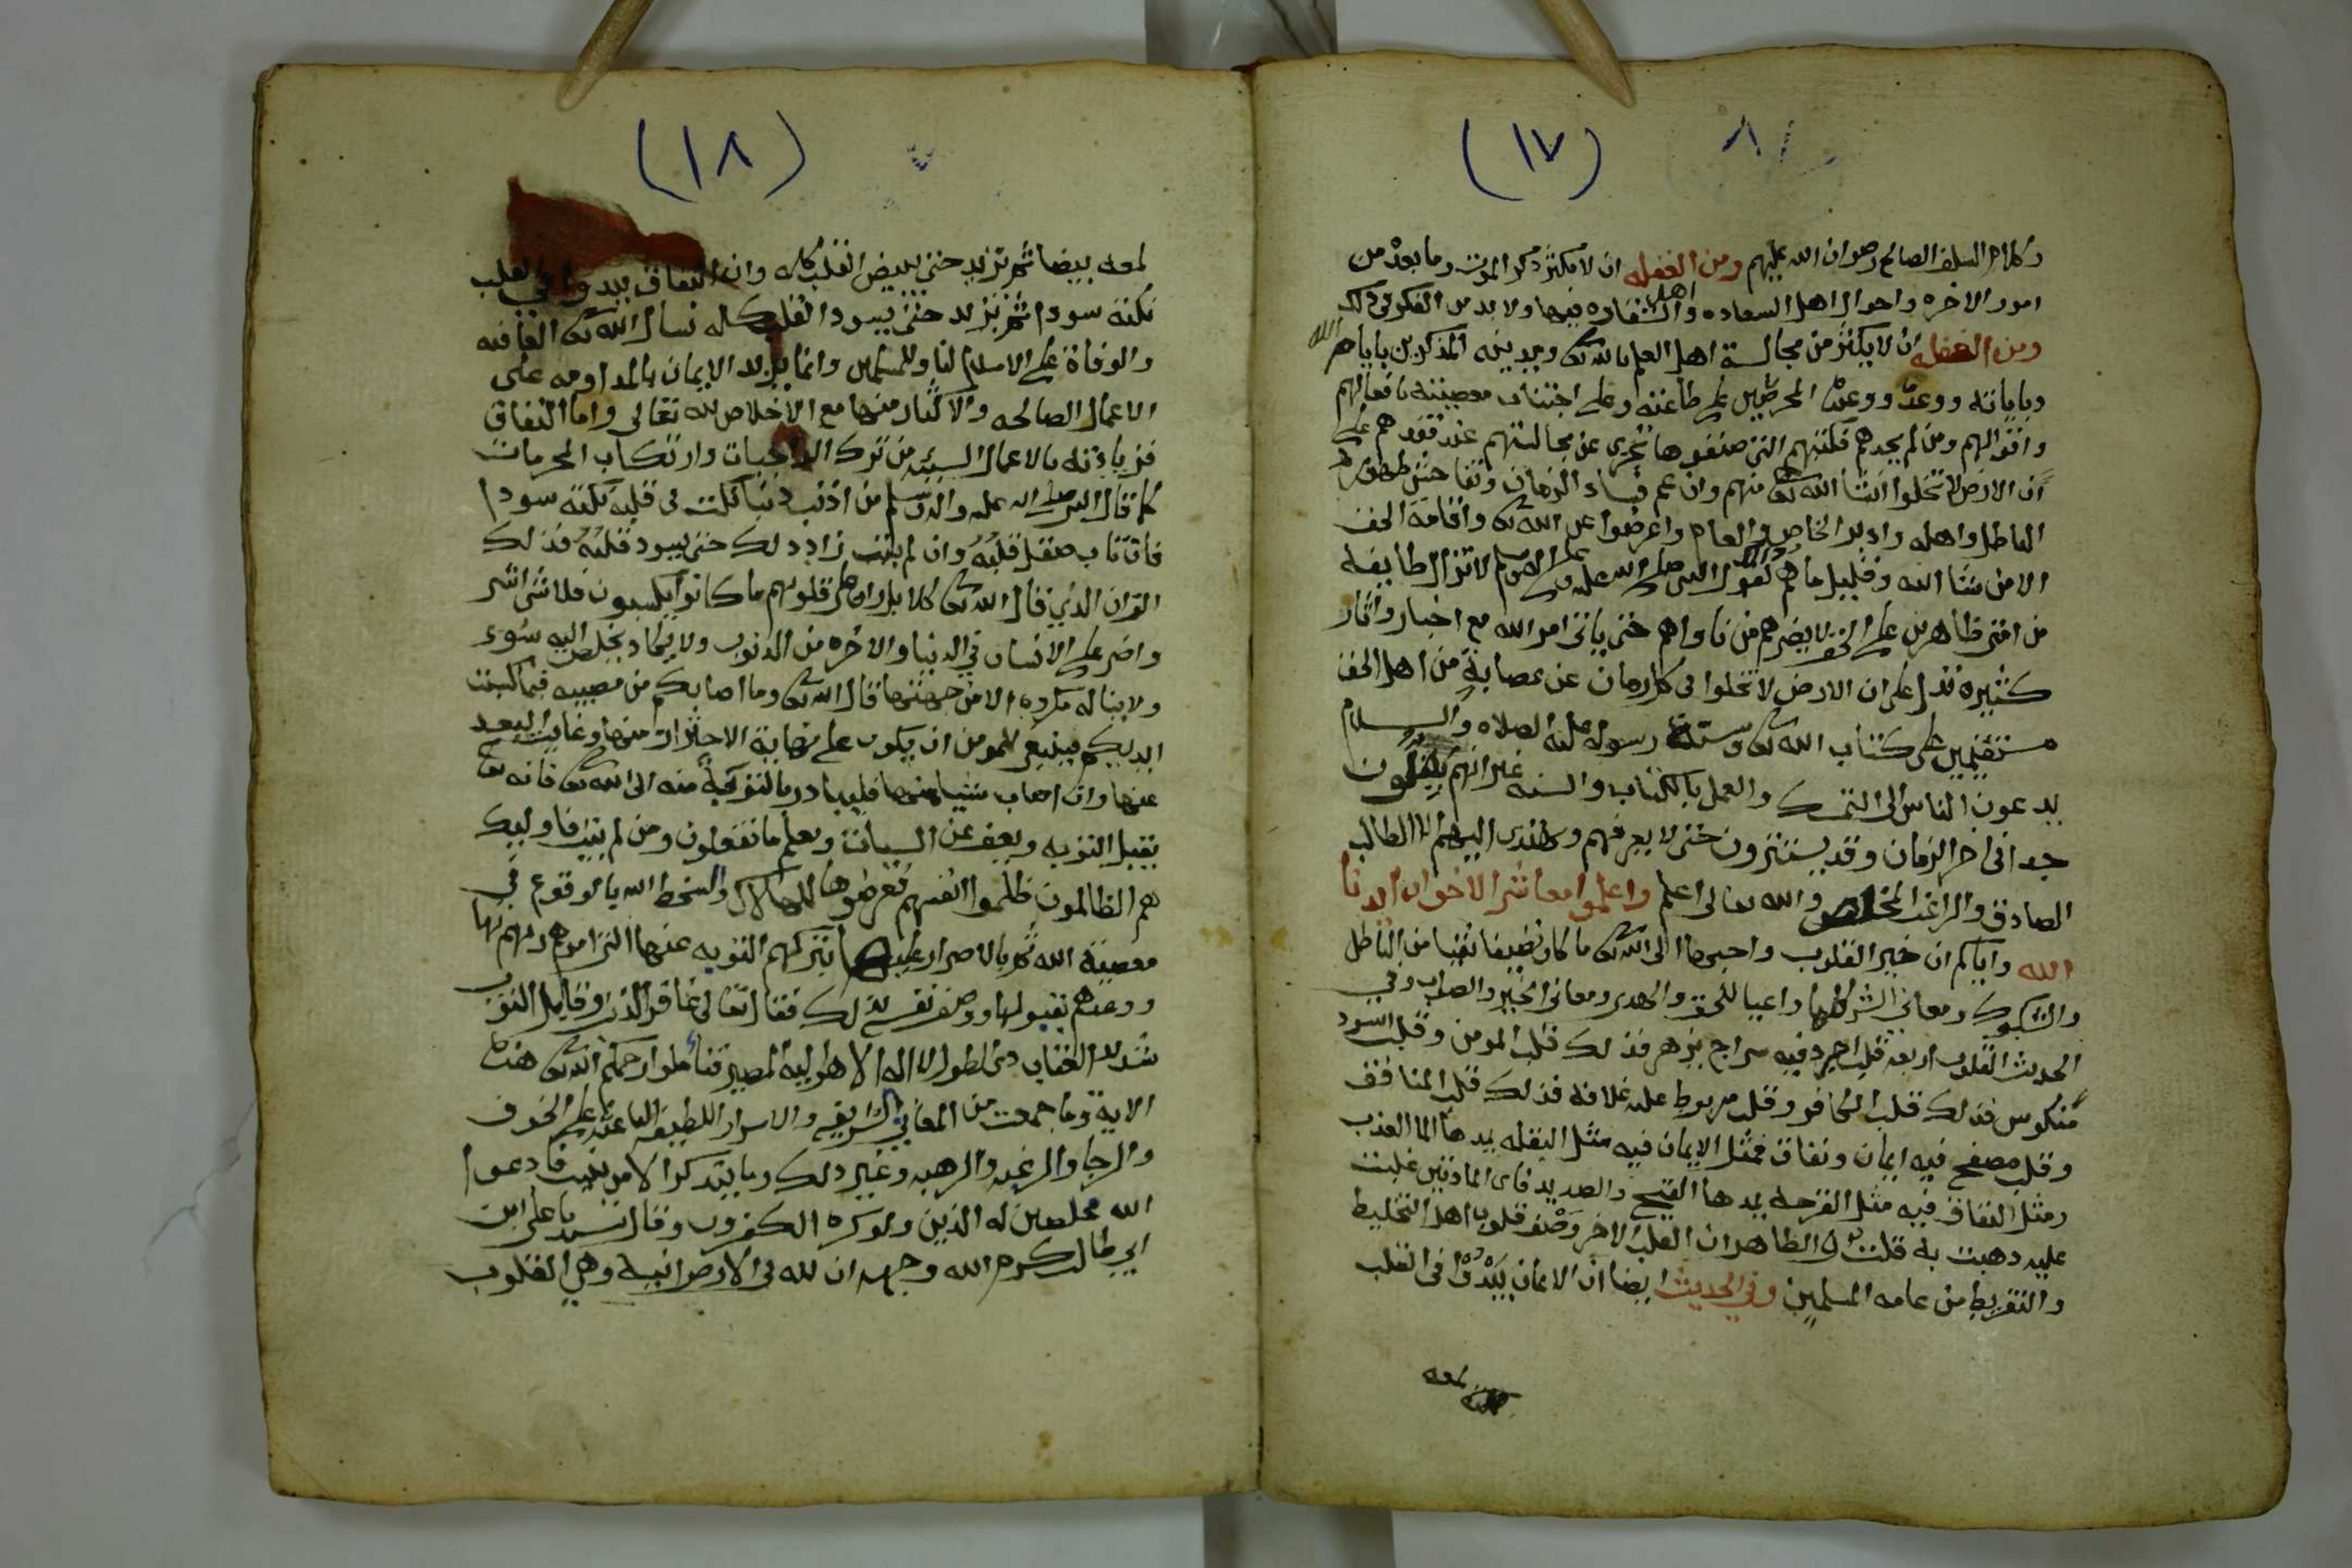 (١٧)
٨
وكلام السلف الصالح رضوان الله عليهم ومن الغفله ان لا يكثر ذكر الموت وما بعده من
امور الاخره واحوال اهل السعاده واهل الشقاوه فيها ولا بد من الفكر في ذلك
ومن الغفله ان لا يكثر من مجالسة اهل العلم بالله تعالى وبدينه المذكرين بايام الله
وباياته ووعده ووعيده المحرضين على طاعته وعلى اجتناب معصيته بافعالهم
واقوالهم ومن لم يجدهم فكتبهم التي صنفوها تجزي عن مجالستهم عند فقدهم على
ان الارض لا تخلوا انشا الله تعالى منهم وان عم فساد الزمان وتفاحش ظهور
الباطل واهله وادبر الخاص والعام واعرضوا عن الله تعالى واقامة الحق
الا من شا الله وقليل ما هم لقول النبي صلى الله عليه وعلى اله وسلم لا تزال طايفه
من امتي ظاهرين على الحق لا يضرهم من ناواهم حتى ياتي امر الله مع اخبار واثار
كثيره تدل على ان الارض لا تخلوا في كل زمان عن عصابة من اهل الحق
مستقيمين على كتاب الله تعالى وسنة رسوله عليه الصلاه والسلام
يدعون الناس الى التمسك والعمل بالكتاب والسنه غير انهم يقلون
جدا في اخر الزمان وقد يستترون حتى لا يعرفهم ويهتدى اليهم الا الطالب
الصادق والراغب المخلص والله تعالى اعلم واعلموا معاشر الاخوان ارشدنا
الله واياكم ان خير القلوب واحبها الى الله تعالى ما كان نظيفا نقيا من الباطل
والشكوك ومعاني الشر كلها واعيا للحق والهدى ومعاني الخير والصواب وفي
الحديث القلوب اربعه قلب اجرد فيه سراج يزهر فذلك قلب المومن وقلب اسود
منكوس فذلك قلب الكافر وقلب مربوط على غلافه فذلك قلب المنافق
وقلب مصفح فيه ايمان ونفاق فمثل الايمان فيه مثل البقله يمدها الما العذب
ومثل النفاق فيه مثل القرحه يمدها القيح والصديد فاى المادتين غلبت
عليه ذهبت به قلت والظاهر ان القلب الاخر وصف قلوب اهل التخليط
والتفريط من عامه المسلمين وفي الحديث ايضا ان الايمان يبدوا في القلب
لمعه
(١٨)
لمعه بيضا ثم تزيد حتى يبيض القلب كله وان النفاق يبدوا في القلب
نكته سودا ثم تزيد حتى يسود القلب كله نسال الله تعالى العافيه
والوفاة على الاسلام لنا وللمسلمين وانما يزيد الايمان بالمداومه على
الاعمال الصالحه والاكثار منها مع الاخلاص لله تعالى واما النفاق
فزيادته بالاعمال السيئه من ترك الواجبات وارتكاب المحرمات
كما قال النبي صلى الله عليه واله وسلم من اذنب ذنبا نكتت في قلبه نكته سودا
فان تاب صقل قلبه وان لم يتب زاد ذلك حتى يسود قلبه فذلك
الران الذي قال الله تعالى كلا بل ران على قلوبهم ما كانوا يكسبون فلا شي اشر
واضر على الانسان في الدنيا والاخره من الذنوب ولا يكاد يخلص اليه سوء
ولا يناله مكروه الا من جهتها قال الله تعالى وما اصابكم من مصيبه فبما كسبت
ايديكم فينبغي للمومن ان يكون على نهاية الاحتراز منها وغاية البعد
عنها وان اصاب شيا منها فليبادر بالتوبة منه الى الله تعالى فانه تعالى
يقبل التوبه ويعف عن السيات ويعلم ما تفعلون ومن لم يتب فاوليك
هم الظالمون ظلموا انفسهم فعرضوها للهلاك والسخط الله بالوقوع في
معصية الله ثم بالاصرار عليها بتركهم التوبه عنها التي امرهم ربهم بها
ووعدهم بقبولها ووصف نفسه بذلك فقال تعالى غافر الذنب وقابل التوب
شديد العقاب ذي الطول لا اله الا هو اليه المصير فتاملوا رحمكم الله تعالى هذه
الاية وما جمعت من المعاني الشريفه والاسرار اللطيفه الباعثه على الخوف
والرجا والرغبه والرهبه وغير ذلك وما يتذكر الا من ينيب فادعوا
الله مخلصين له الدين ولو كره الكفرون وقال سيدنا على ابن
ابي طالب كرم الله وجهه ان لله في الارض انية وهي القلوب